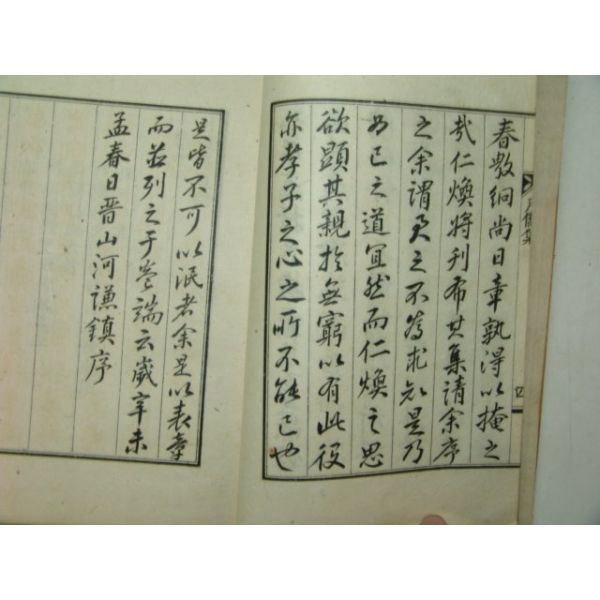 春敷絅尚日章孰得以掩之
哉仁煥將刊布其集請余序
之余謂君之不爲求知是乃
爲己之道宜然而仁煥之思
欲顯其親於無窮以有此役
亦孝子之心之所不能已也
是皆不可以泯者余是以表章
而並列之于卷端云歲辛未
孟春日晋山河謙鎮序
集
四